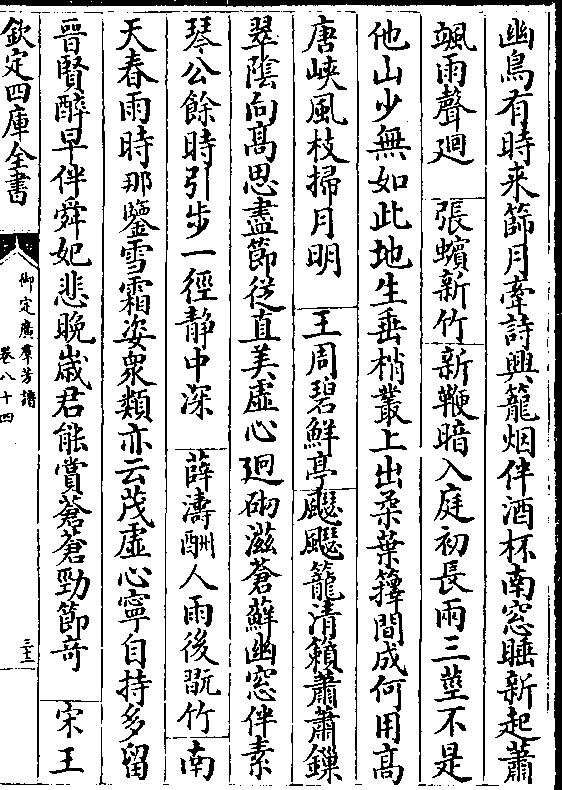 幽鳥有時来篩月牽詩興籠烟伴酒杯南窓睡新起蕭
颯雨聲廻　張蠙新竹新鞭暗入庭初長兩三莖不是
他山少無如此地生垂梢叢上出柔葉籜間成何用高
唐峽風枝掃月明　王周碧鮮亭颸颸籠清籟蕭蕭鏁
翠陰向髙思盡節從直美虚心廻砌滋蒼蘚幽窓伴素
琴公餘時引歩一徑静中深　薛濤酬人雨後翫竹南
天春雨時那鑒雪霜姿衆類亦云茂虚心寧自持多留
晉賢醉早伴舜妃悲晚嵗君能賞蒼蒼勁節竒　宋王
欽定四庫全書
御定廣羣芳譜
卷八十四
三十三